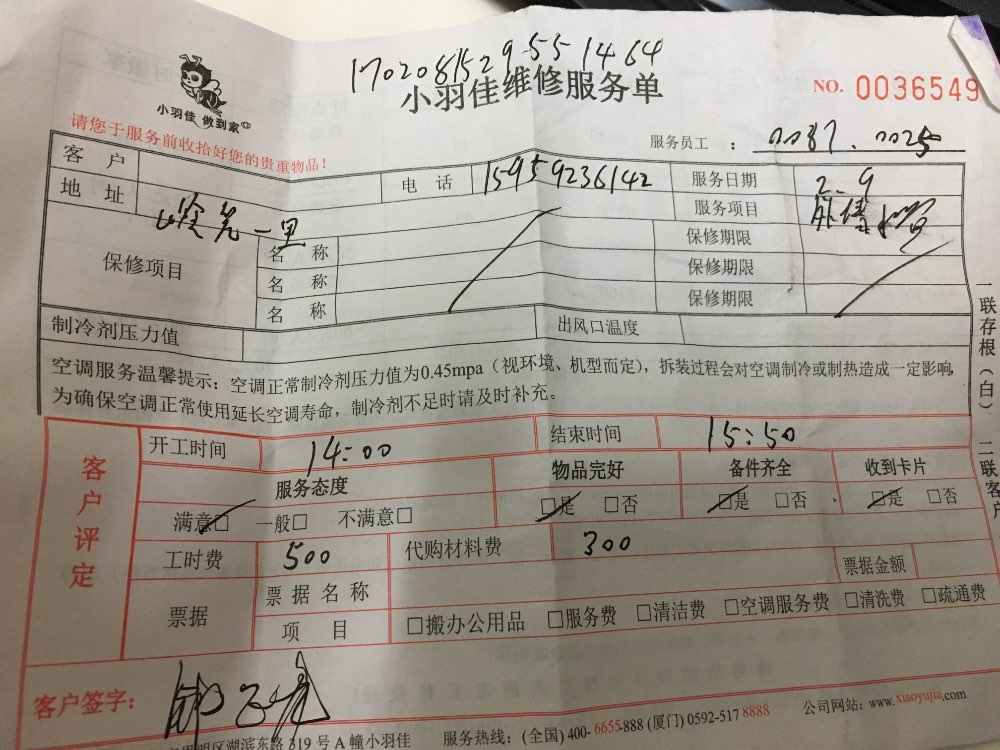 170208152955 1464
小羽佳维修服务单
NO. 0036549
小羽佳 做到家
请您于服务前收拾好您的贵重物品！
服务员工 ： 0087. 0025
客 户 电 话 15959236142 服务日期 2.9
地 址 一里 服务项目
保修项目 名 称 保修期限
名 称 保修期限
名 称 保修期限
制冷剂压力值 出风口温度
空调服务温馨提示：空调正常制冷剂压力值为0.45mpa（视环境、机型而定），拆装过程会对空调制冷或制热造成一定影响，
为确保空调正常使用延长空调寿命，制冷剂不足时请及时补充。
一联存根（白） 二联客户
客户评定
开工时间 14:00 结束时间 15:50
服务态度 物品完好 备件齐全 收到卡片
满意□ 一般□ 不满意□ □是 □否 □是 □否 □是 □否
工时费 500 代购材料费 300
票据 票据名称 票据金额
项 目 □搬办公用品 □服务费 □清洁费 □空调服务费 □清洗费 □疏通费
客户签字：
明区湖滨东路319号A幢小羽佳 服务热线：(全国) 400-6655-888 (厦门) 0592-517 8888 公司网站：www.xiaoyujia.com